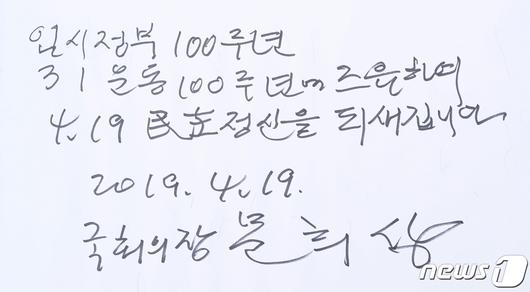 임시정부 100주년
3 1 운동 100주년에 즈음하여
4.19 民主정신을 되새깁니다
2019. 4. 19.
국회의장 문희상
news1